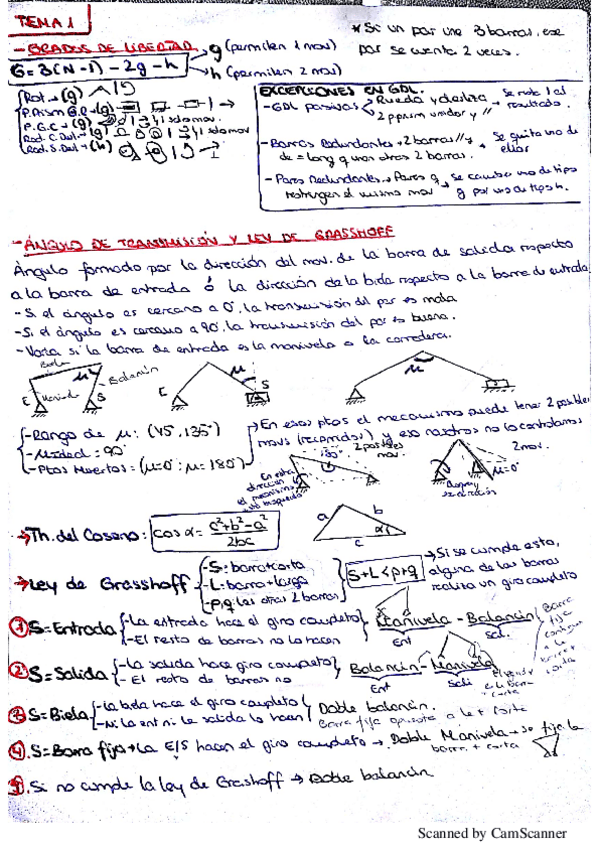 TEMA 1
* Si un par une 3 barras, ese
par se cuenta 2 veces.
- GRADOS DE LIBERTAD
G = 3(N-1) - 2g - h
g (permiten 1 mov)
h (permiten 2 mov)
Rot. → (g)
P. Prism
P.G.C → (g)
1 solo mov
Rod. C. Del. → (g)
1 solo mov
Rod. S. Del. → (h)
EXCEPCIONES EN GDL.
- GDL pasivos
Rueda y desliza
2 pprism unidor y //
Se resta 1 al
resultado.
- Barras Redundantes → 2 barras // y
de = long q unen otras 2 barras.
Se quita una de
ellas
- Pares Redundantes → Pares q
restringen el mismo mov
se cambia uno de tipo
g por uno de tipo h.
- ÁNGULO DE TRANSMISIÓN Y LEY DE GRASSHOFF
Ángulo formado por la dirección del mov. de la barra de salida respecto
a la barra de entrada ó la dirección de la biela respecto a la barra de entrada
- Si el ángulo es cercano a 0°, la transmisión del par es mala
- Si el ángulo es cercano a 90°, la transmisión del par es buena.
- Varia si la barra de entrada es la manivela o la corredera.
Biela
μ
Balancín
Manivel
E
S
E
μ
S
μ
- Rango de μ: (45°, 135°)
- μideal: 90°
- Ptos Muertos: (μ=0°; μ=180°)
En esos ptos el mecanismo puede tener 2 posibles
movs (recorridos) y eso nosotros no lo controlamos
180°
2 posibles
mov.
En esta
dirección
el mecanismo
está bloqueado
2 mov.
μ=0°
→ Th. del Coseno: cos α = c²+b²-a² / 2bc
a
b
c
α
→ Ley de Grasshoff
- S: barra + corta
- L: barra + larga
- p, q: las otras 2 barras
S+L < p+q
→ Si se cumple esto,
alguna de las barras
realiza un giro completo
1 S = Entrada
- La entrada hace el giro completo
- El resto de barras no lo hacen
Manivela - Balancín
Ent
Sal.
Barra
fija
contigua
a la
barra +
corta
2 S = Salida
- La salida hace giro completo
- El resto de barras no
Balancín - Manivela
Ent
Sali
3 S = Biela
- La biela hace el giro completo
- Ni la ent ni la salida lo hacen
Doble balancín.
Barra fija opuesta a la + corta
4 S = Barra fija → La E/S hacen el giro completo → Doble Manivela → se fija la
barra + corta
5. Si no cumple la ley de Grashoff → Doble balancín
Scanned by CamScanner